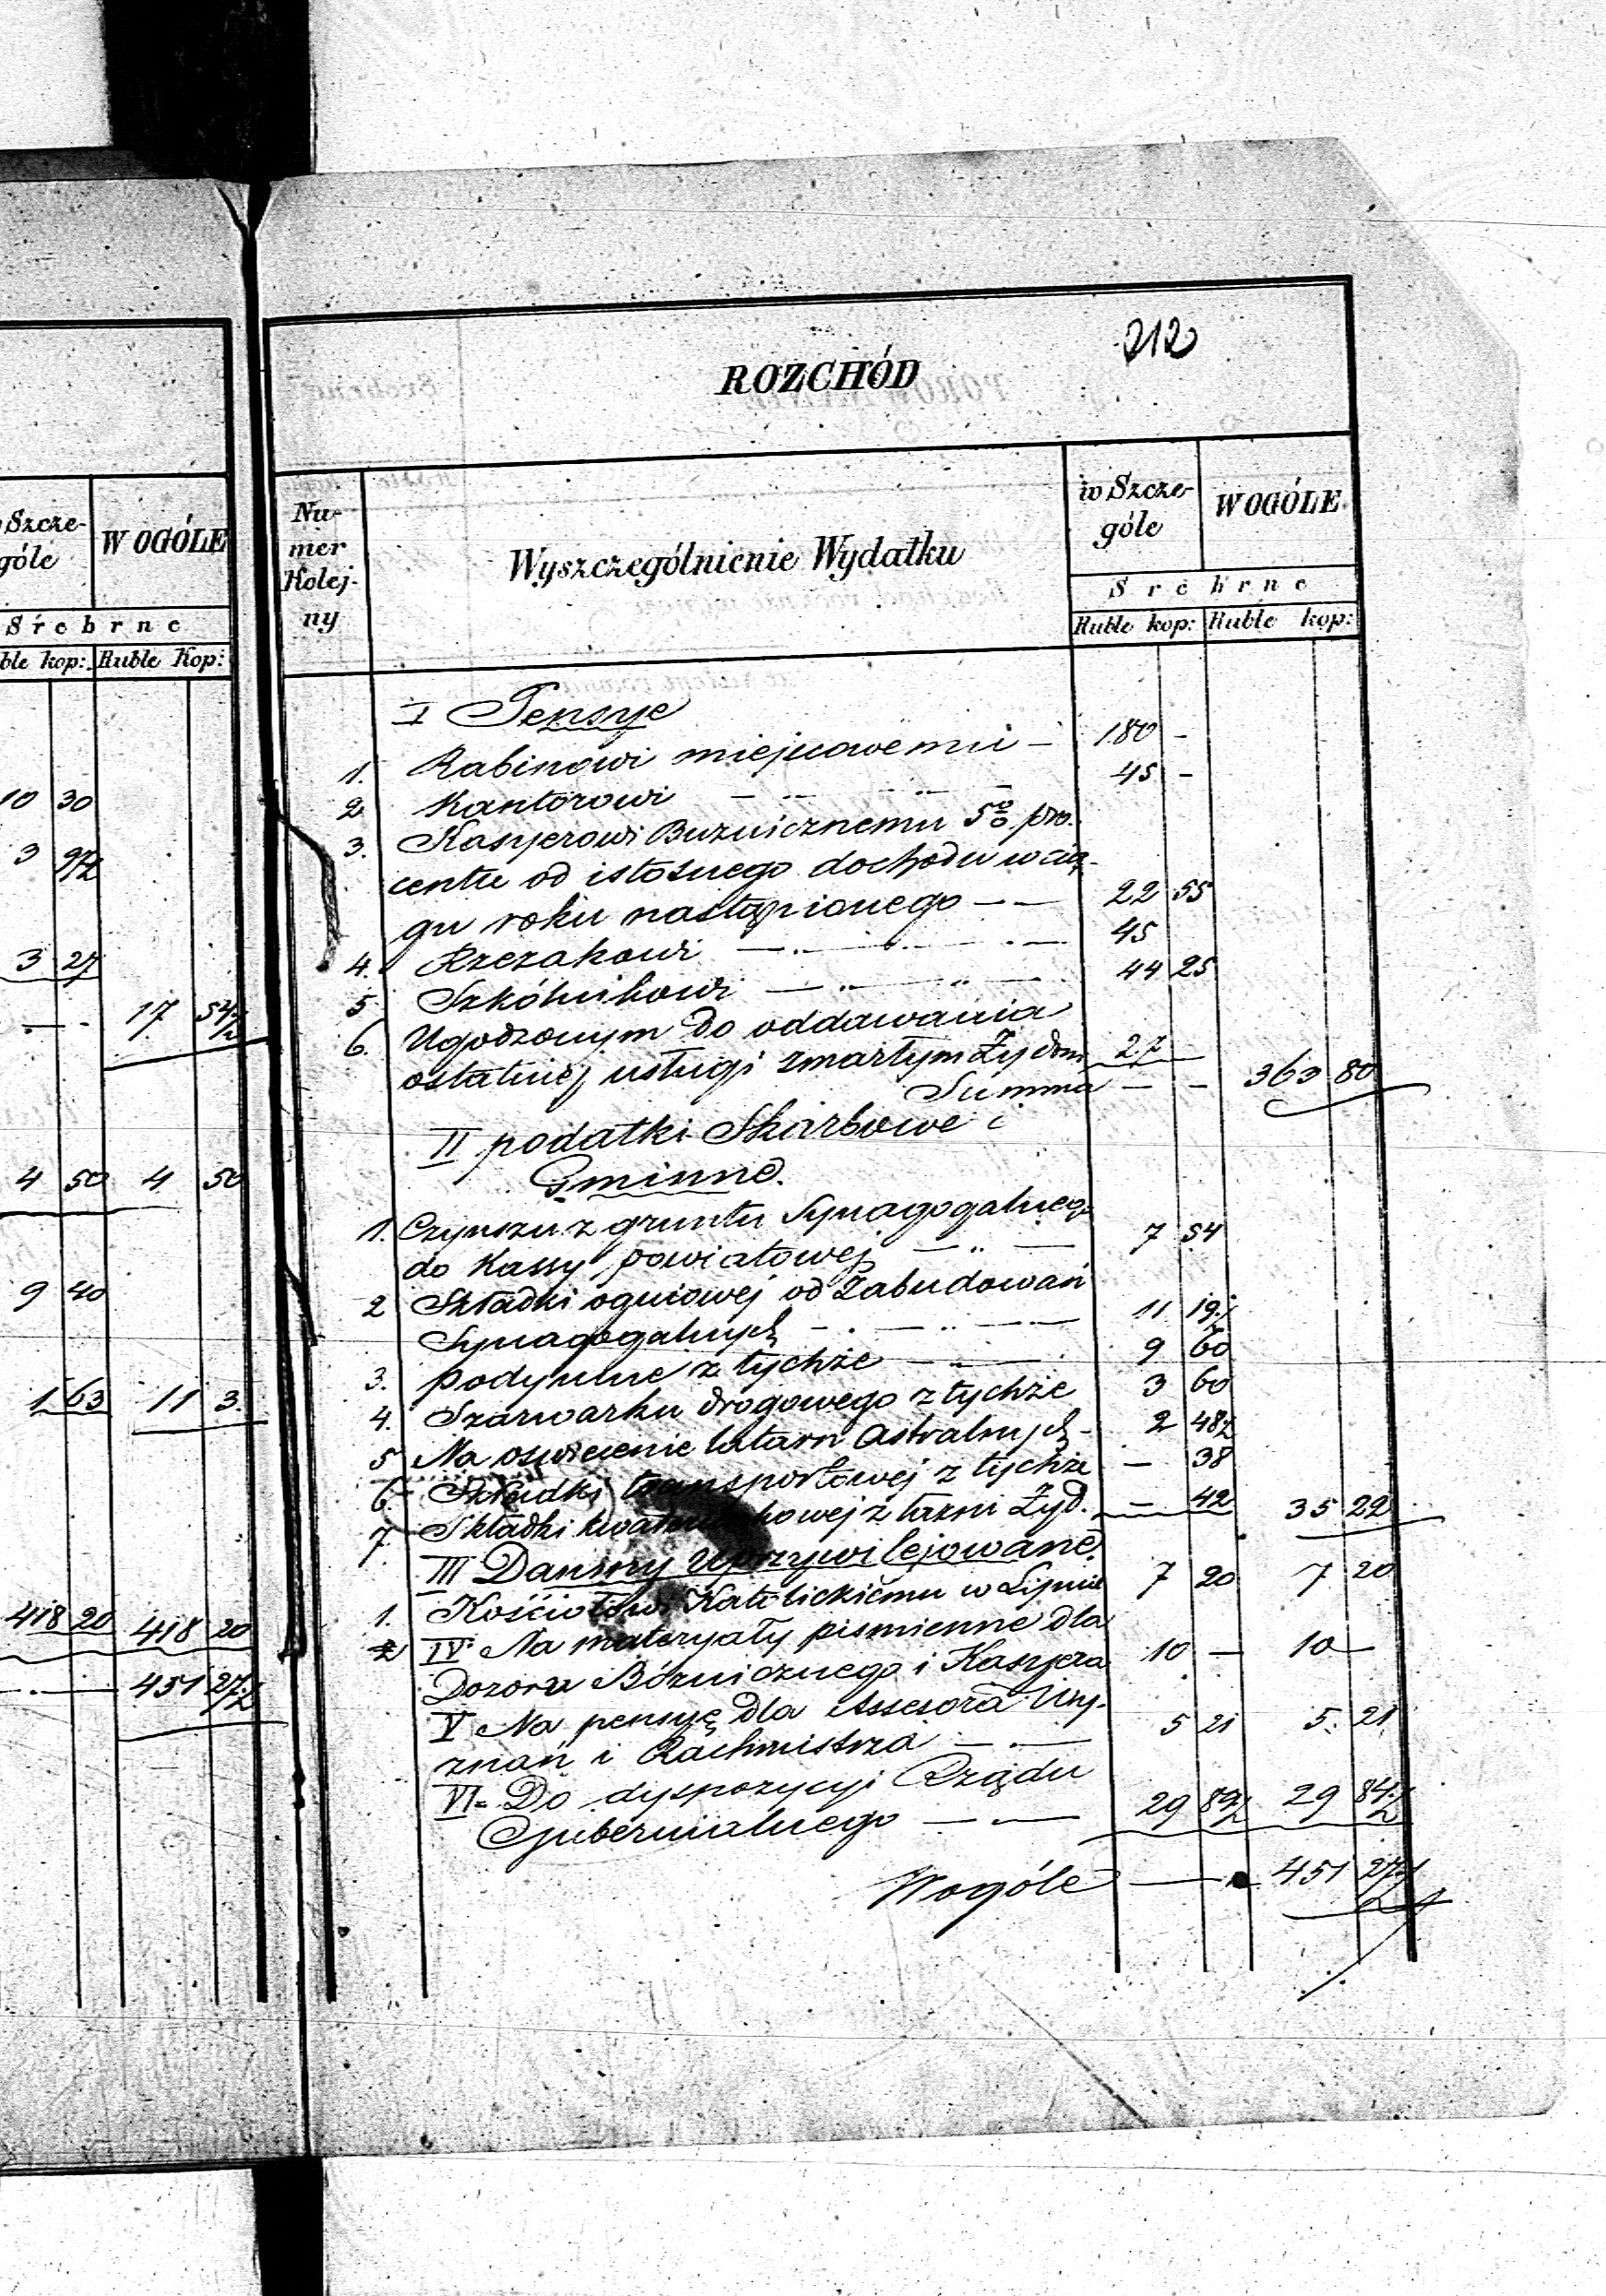 212
ROZCHÓD
w Szcze-
góle
W OGÓLE
Srebrne
Ruble kop: Ruble Kop:
10 30
3 97½
3 27
17 54½
4 50 4 50
9 40
1 63 11 3
418 20 418 20
451 27½
Nu-
mer
Kolej-
ny
Wyszczególnienie Wydatku
w Szcze-
góle
W OGÓLE
Srebrne
Ruble kop: Ruble kop:
I Pensye
1. Rabinowi miejscowemu – 180 –
2 Kantorowi 45 –
3. Kasyerowi Buznicznemu 5% pro-
centu od istotnego dochodu w cią-
gu roku nastąpionego 22 55
4. Rzezakowi 45
5 Szkólnikowi 44 25
6. Ugodzonym do oddawania
ostatniej usługi zmarłym Żydom 27 –
Summa – – 363 80
II podatki Skarbowe i
Gminne.
1. Czynszu z gruntu Synagogalnego
do Kassy powiatowej 7 54
2 Składki ogniowej od Zabudowań
Synagogalnych 11 19½
3. podymne z tychże 9 60
4. Szarwarku drogowego z tychże 3 60
5 Na oswiecenie latarn Astralnych – 2 48½
6 Składki transportowej z tychże – 38
7 Składki z łazni Żyd. – 42 35 22
III Daniny Uprzywilejowane.
1. Kościołowi Katolickiemu w Lipnie 7 20 7 20
IV Na materyały pismienne dla
Dozoru Bóżnicznego i Kasyera 10 – 10 –
V Na pensyę dla Assesora Wy-
znań i Rachmistrza 5 21 5. 21
VI Do dyspozycyi Rządu
Gubernialnego 29 84½ 29 84½
Wogóle 451 27½